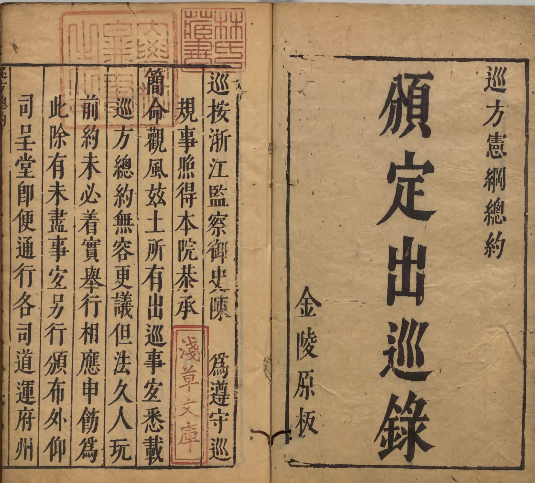 巡方憲綱總約
頒定出巡錄
金陵原板
巡按浙江監察御史陳　為遵守巡
規事照得本院恭承
簡命觀風玆土所有出巡事宐悉載
巡方總約無容更議但法久人玩
前約未必着實舉行相應申飭為
此除有未盡事宐另行頒布外仰
司呈堂卽便通行各司道運府州
林氏
藏書
淺草文庫